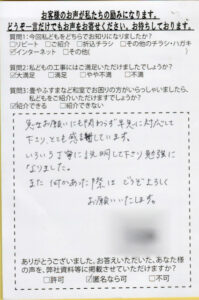 お客様のお声が私たちの励みになります。
どうぞ一言だけでもお声をお寄せください。お待ちしております。
質問1:今回私どもをどちらでお知りになりましたか?
□リピート □ご紹介 □折込チラシ □その他のチラシ・ハガキ
☑インターネット □その他(
質問2:私どもの工事にはご満足いただけましたでしょうか?
☑大満足 □満足 □やや不満 □不満
質問3:畳やふすまなど和室でお困りの方がいらっしゃいましたら、
私どもをご紹介いただけますでしょうか?
☑紹介できる □紹介できない
急なお願いにも関わらず早急に対応して
下さりとても感謝しています。
いろいろ丁寧に説明して下さり勉強に
なりました。
また何かあった際はどうぞよろしく
お願いいたします。
ありがとうございました。お答えいただいた、あなた様
の声を、弊社資料等に掲載させていただけますか?
□許可 ☑匿名なら可 □不可